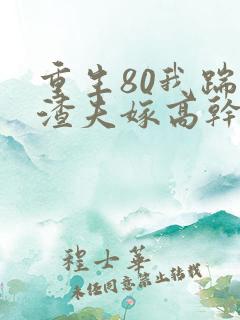 重生80我踹
渣夫嫁高幹
程士華
未经同意禁止转载